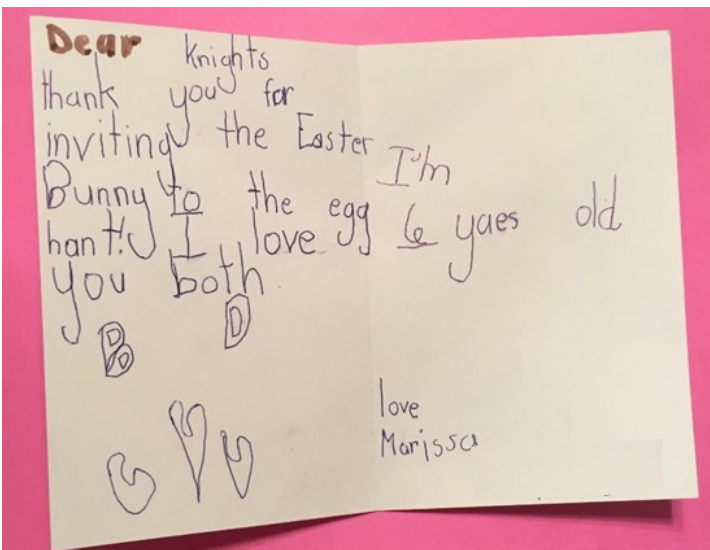 Dear Knights
thank you for
inviting the Easter
Bunny to the egg
hant! I love
you both
B D
I'm
6 yaes old
love
Marissa